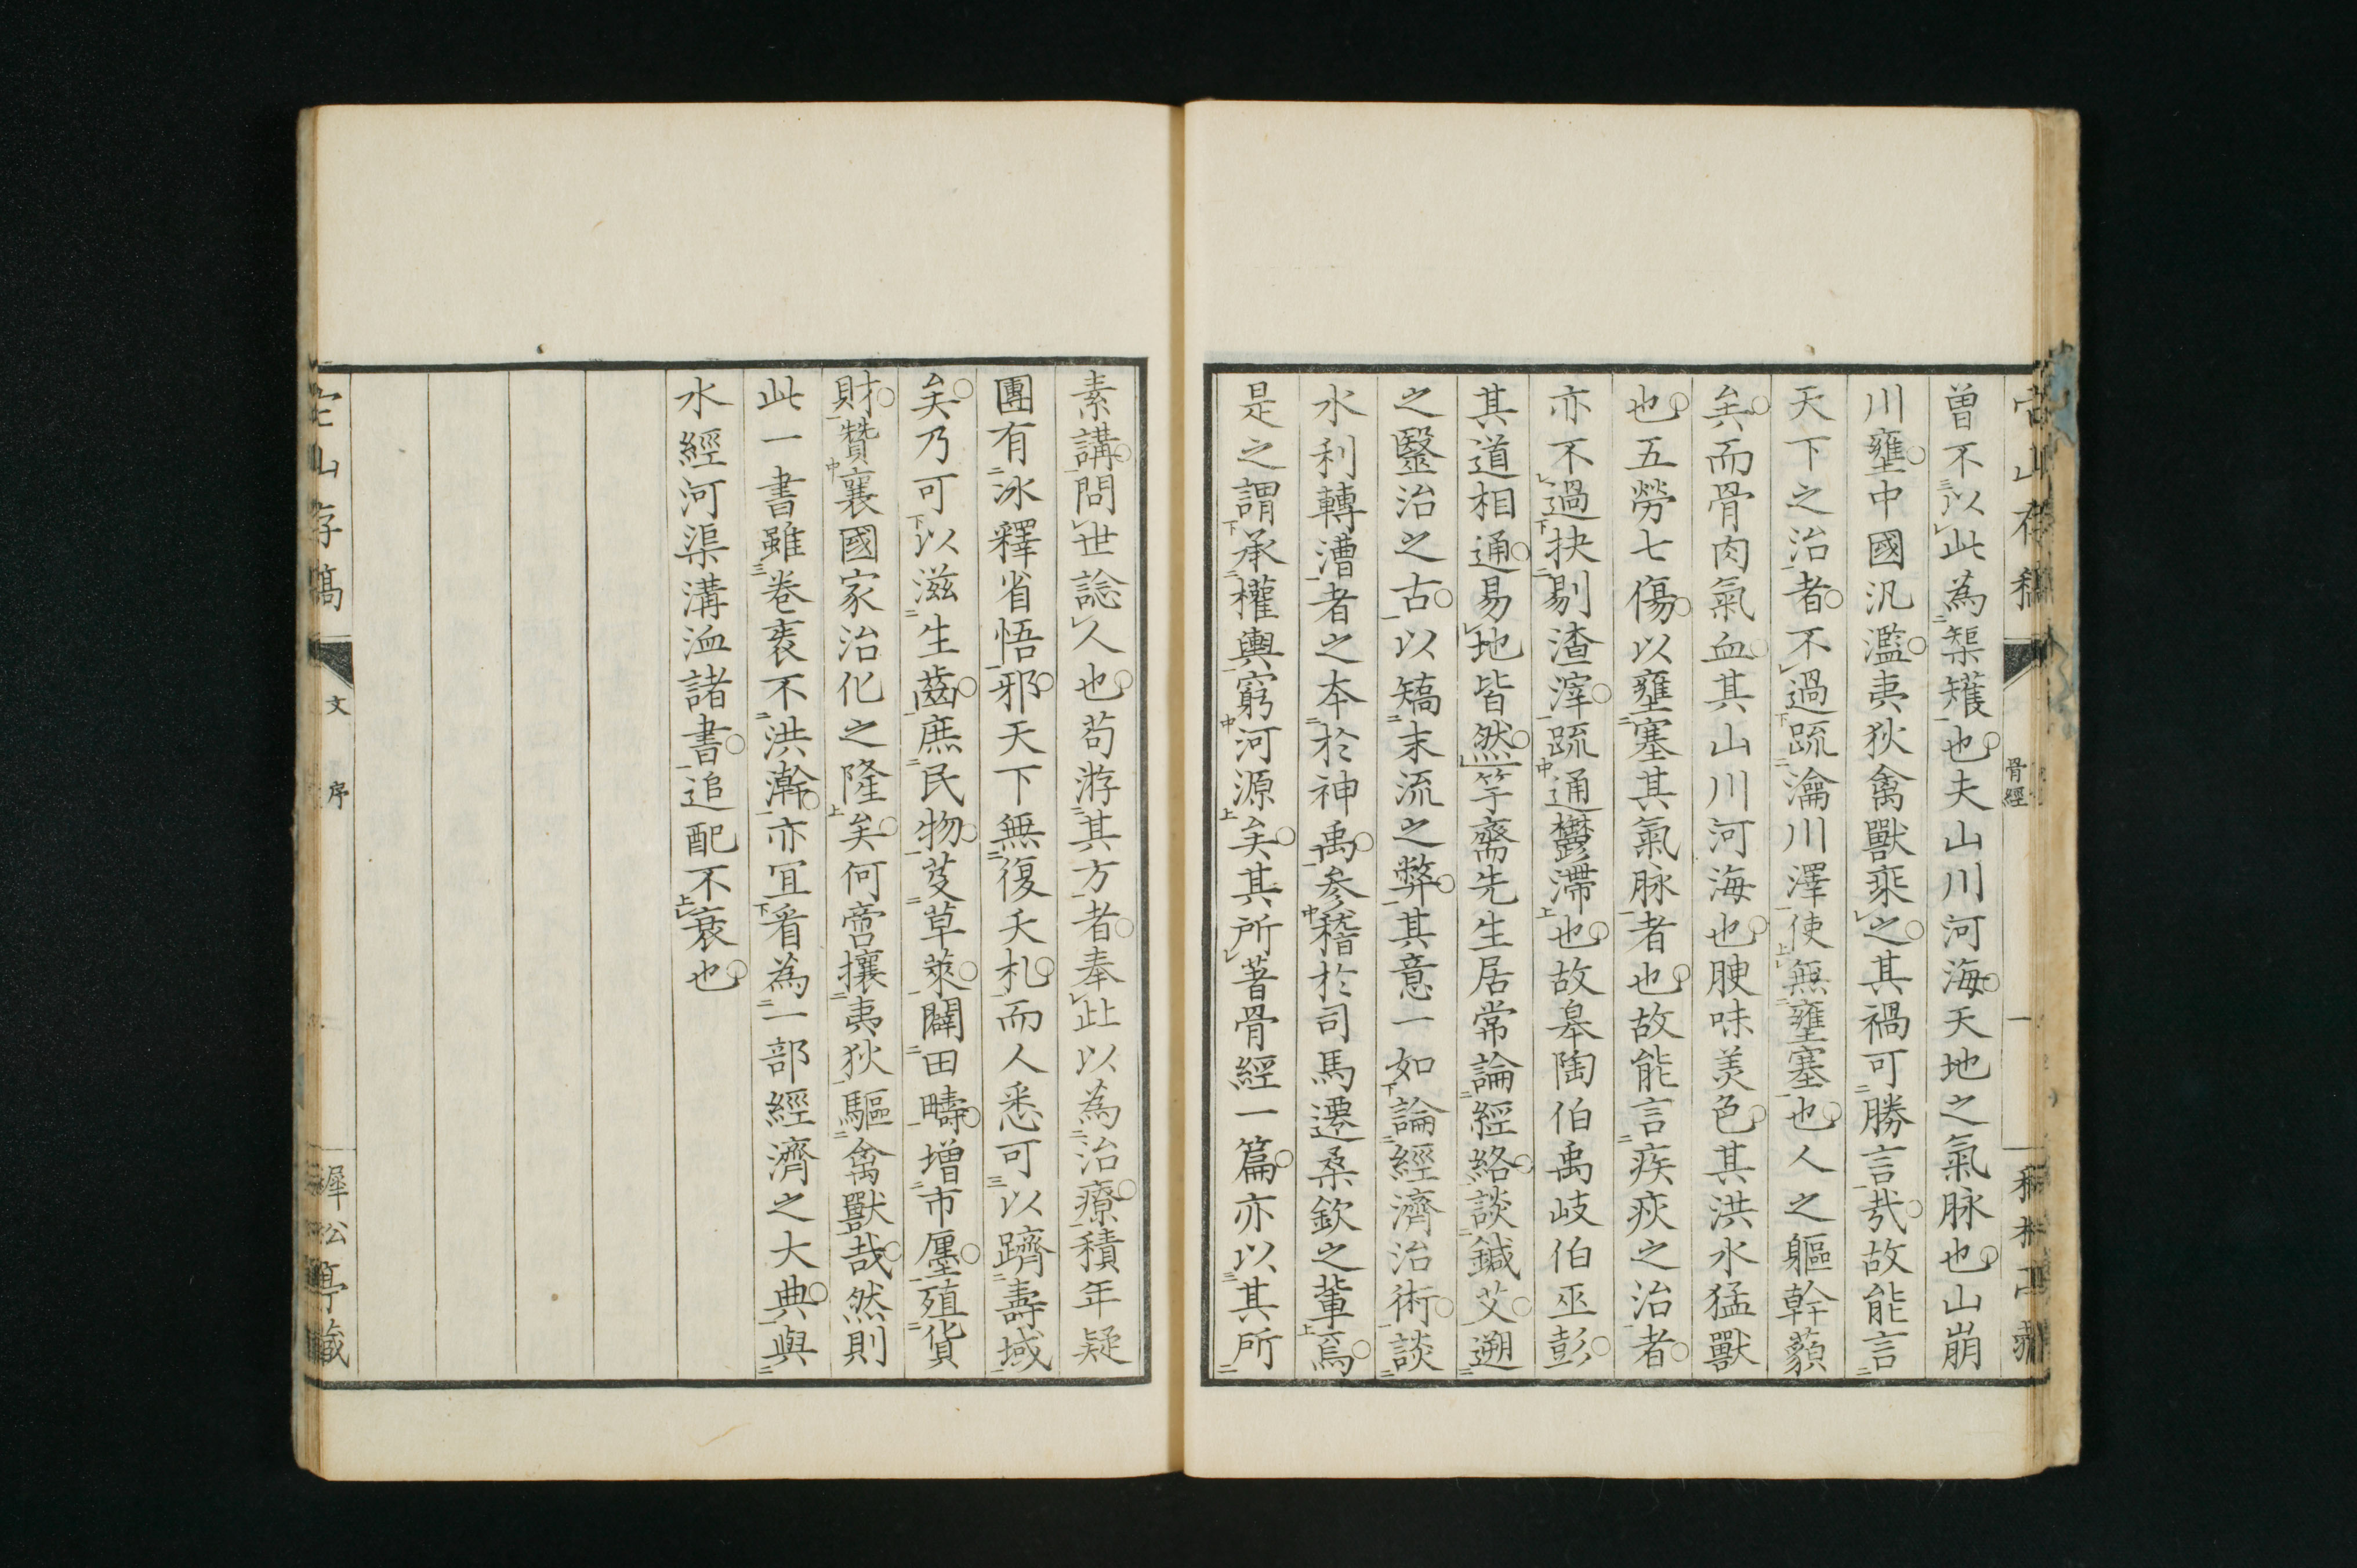 骨經
一
曽不以此為榘矱也夫山川河海天地之氣脉也山崩
川壅中國汎濫夷狄禽獸乘之其禍可勝言㢤故能言
天下之治者不過疏瀹川澤使無壅塞也人之軀幹藐
矣而骨肉氣血其山川河海也腴味美色其洪水猛獸
也五勞七傷以壅塞其氣脉者也故能言疾疢之治者
亦不過抉剔渣滓疏通欝滯也故皋陶伯禹岐伯巫彭
其道相通易地皆然竽齋先生居常論經絡談鍼艾遡
之毉治之古以矯末流之弊其意一如論經濟治術談
水利轉漕者之夲於神禹参稽於司馬遷桑欽之輩焉
是之謂承權輿窮河源矣其所著骨經一篇亦以其所
素講問世諗人也苟游其方者奉此以為治療積年疑
團有冰釋省悟邪天下無復夭札而人悉可以躋壽域
矣乃可以滋生齒庶民物芟草萊闢田疇增市廛殖貨
財贊襄國家治化之隆矣何啻攘夷狄驅禽獸哉然則
此一書雖卷袠不洪瀚亦冝看為一部經濟之大典與
水經河渠溝洫諸書追配不衰也
宕山存稿
文
序
犀松亭藏